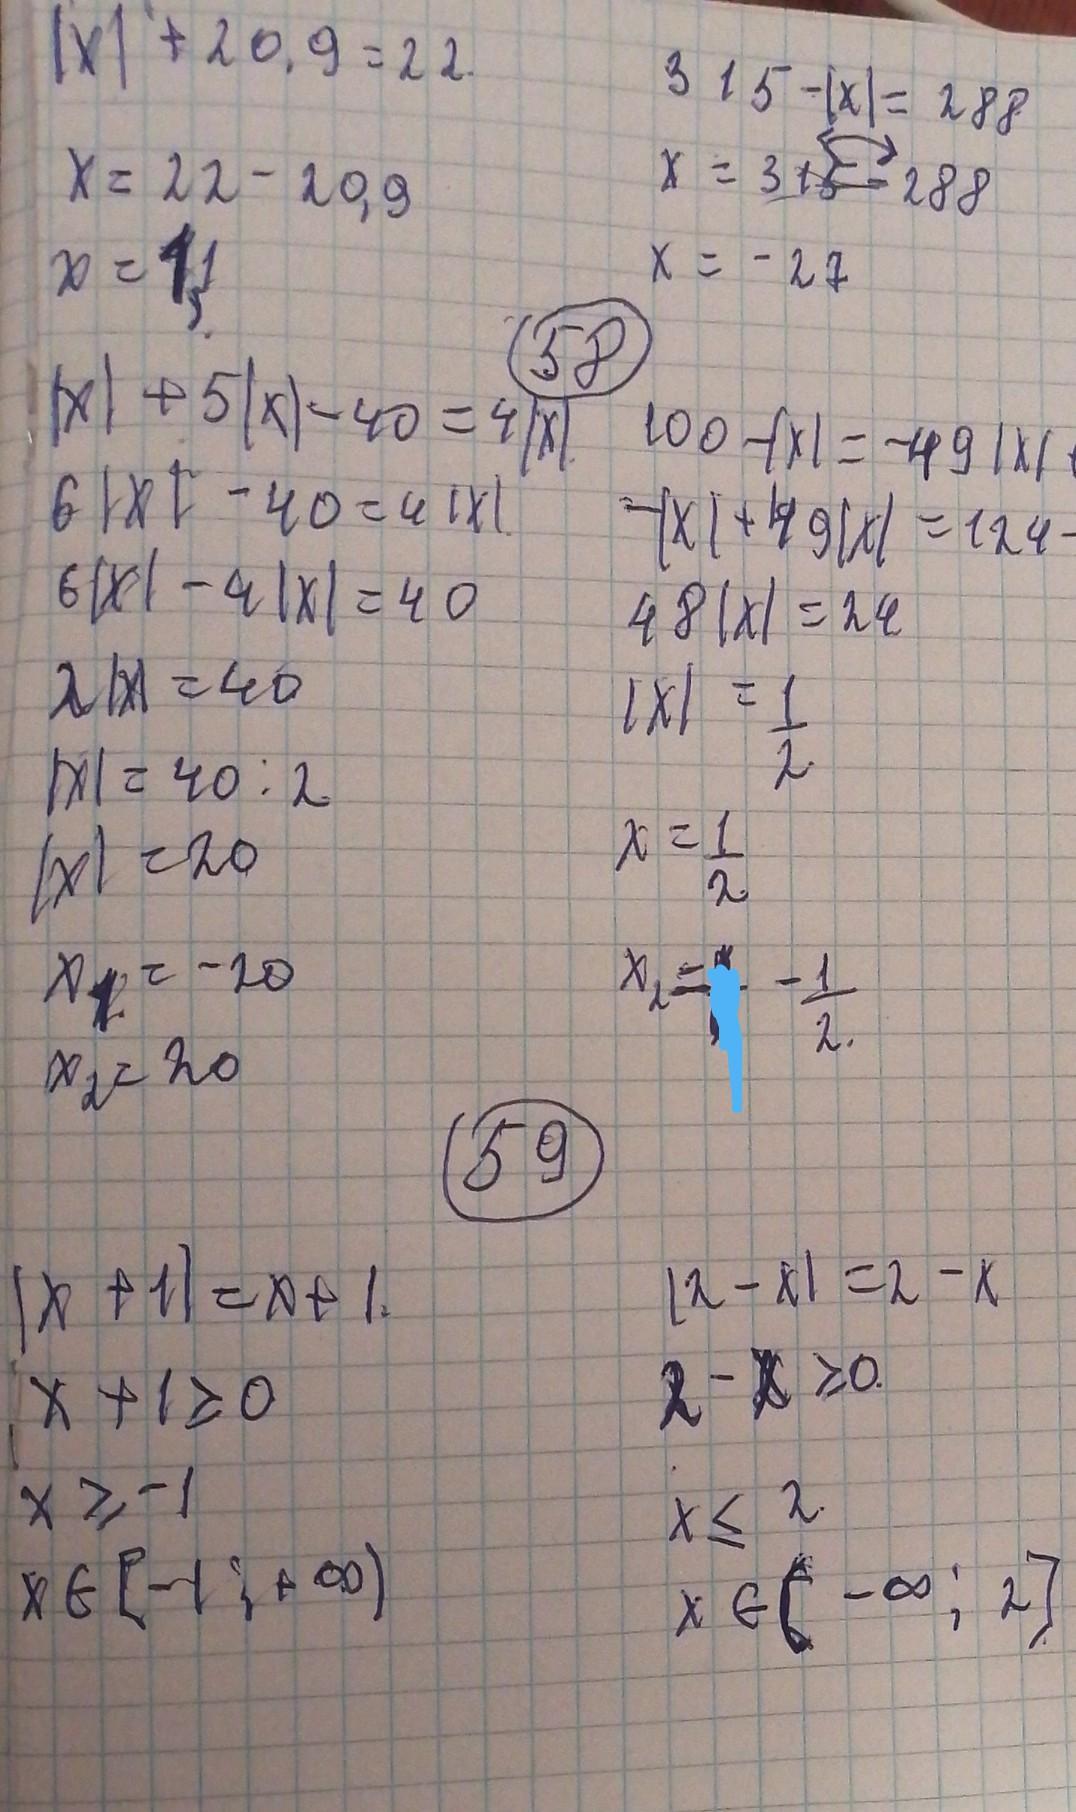 |x| + 20,9 = 22.
x = 22 - 20,9
x = 1,1
315 - |x| = 288
x = 315 - 288
x = -27
58
|x| + 5|x| - 40 = 4|x|.
6|x| - 40 = 4|x|.
6|x| - 4|x| = 40
2|x| = 40
|x| = 40 : 2
|x| = 20
x1 = -20
x2 = 20
100 - |x| = -49|x| +
-|x| + 49|x| = 124 -
48|x| = 24
|x| = 1/2
x = 1/2
x2 = -1/2.
59
|x + 1| = x + 1.
x + 1 ≥ 0
x ≥ -1
x ∈ [-1; +∞)
|2 - x| = 2 - x
2 - x ≥ 0.
x ≤ 2.
x ∈ (-∞; 2]